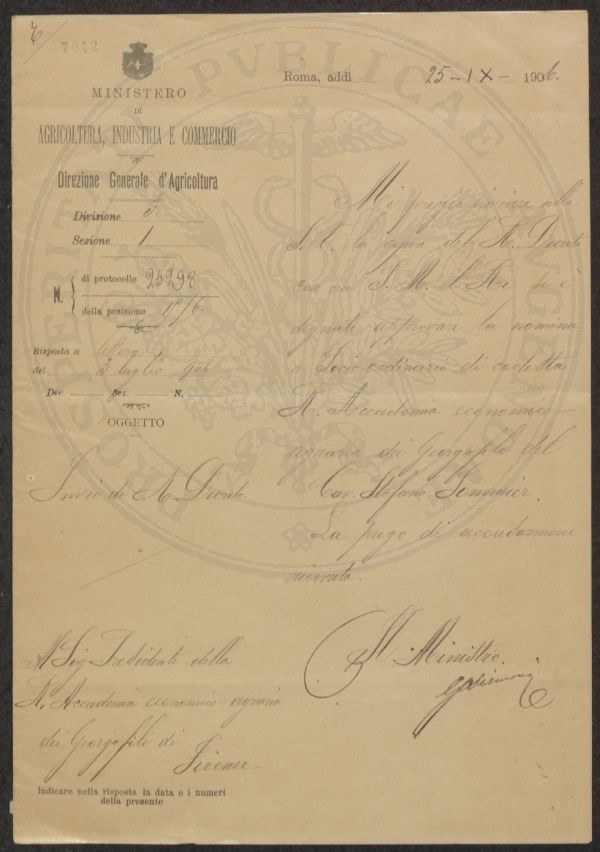 7642
MINISTERO
DI
AGRICOLTURA, INDUSTRIA E COMMERCIO
Direzione Generale d'Agricoltura
Divisione 3
Sezione 1
N. di protocollo 25298
della posizione
Risposta a
del 3 luglio 906
Div. Sez. N.
OGGETTO
Invio di R. Decreto.
Roma, addì 25-IX-1906.
Mi pregio inviare alla
S. V. la copia del R. Decreto
con cui S. M. il Re si è
degnato approvare la nomina
a Socio ordinario di codesta
R. Accademia economico-
agraria dei Georgofili del
Cav. Stefano Sommier.
La prego di accusarmene
ricevuta.
Il Ministro
Al Sig. Presidente della
R. Accademia economico-agraria
dei Georgofili di
Firenze
Indicare nella risposta la data e i numeri
della presente
PROSPERITATI PVBLICAE AVGENDAE